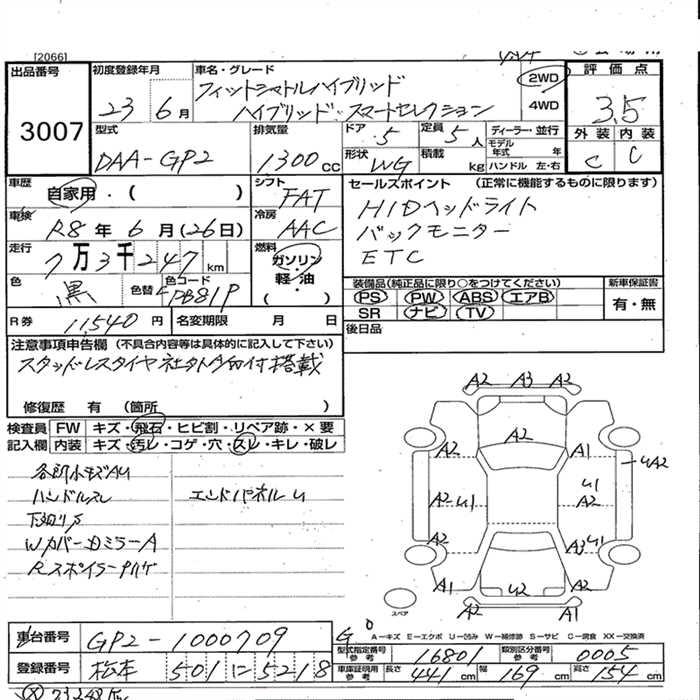 [2066]
出品番号
3007
初度登録年月
23 6月
車名・グレード
フィットシャトルハイブリッド
ハイブリッド・スマートセレクション
2WD
4WD
評価点
3.5
外装 内装
C C
型式
DAA-GP2
排気量
1300cc
ドア 5
定員 5人
形状 WG
積載 kg
ディーラー・並行
モデル年式 年
ハンドル 左・右
車歴
自家用・( )
シフト
FAT
車検
R8年6月(26日)
冷房
AAC
走行
7万3千247km
燃料
ガソリン
軽・油
( )
色
黒
色替
色コード
PB81P
R券 11,540円
名変期限 月 日
セールスポイント (正常に機能するものに限ります)
HIDヘッドライト
バックモニター
ETC
装備品(純正品に限り○をつけてください)
PS PW ABS エアB
SR ナビ TV
新車保証書
有・無
後日品
注意事項申告欄 (不具合内容等は具体的に記入して下さい)
スタッドレスタイヤ 積載
修復歴 有 (箇所 )
検査員記入欄
FW キズ・飛石・ヒビ割・リペア跡・×要
内装 キズ・汚レ・コゲ・穴・スレ・キレ・破レ
各部小キズAU
ハンドルスレ
下廻りS
Wカバー・DミラーA
Rスポイラーハゲ
エンドパネルU
A2 A3 A2
A2
A2 A1
UA2
A2・U1
U1
A2
A2
U1
A3
A1 U2 A2
A2 A1
スペア
A−キズ E−エクボ U−凹み W−補修跡 S−サビ C−腐食 XX−交換済
車台番号 GP2-1000709
登録番号 松本 501 に 5218
型式指定番号 参考 16801
類別区分番号 参考 0005
車庫証明用 参考 長さ 441cm 幅 169cm 高さ 154cm